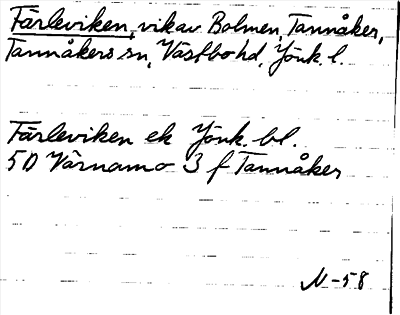 Färleviken, vik av Bolmen, Tannåker,
Tannåkers sn, Västbo hd, Jönk. l.
Färleviken ek Jönk. bl.
5D Värnamo 3 f Tannåker
N-58